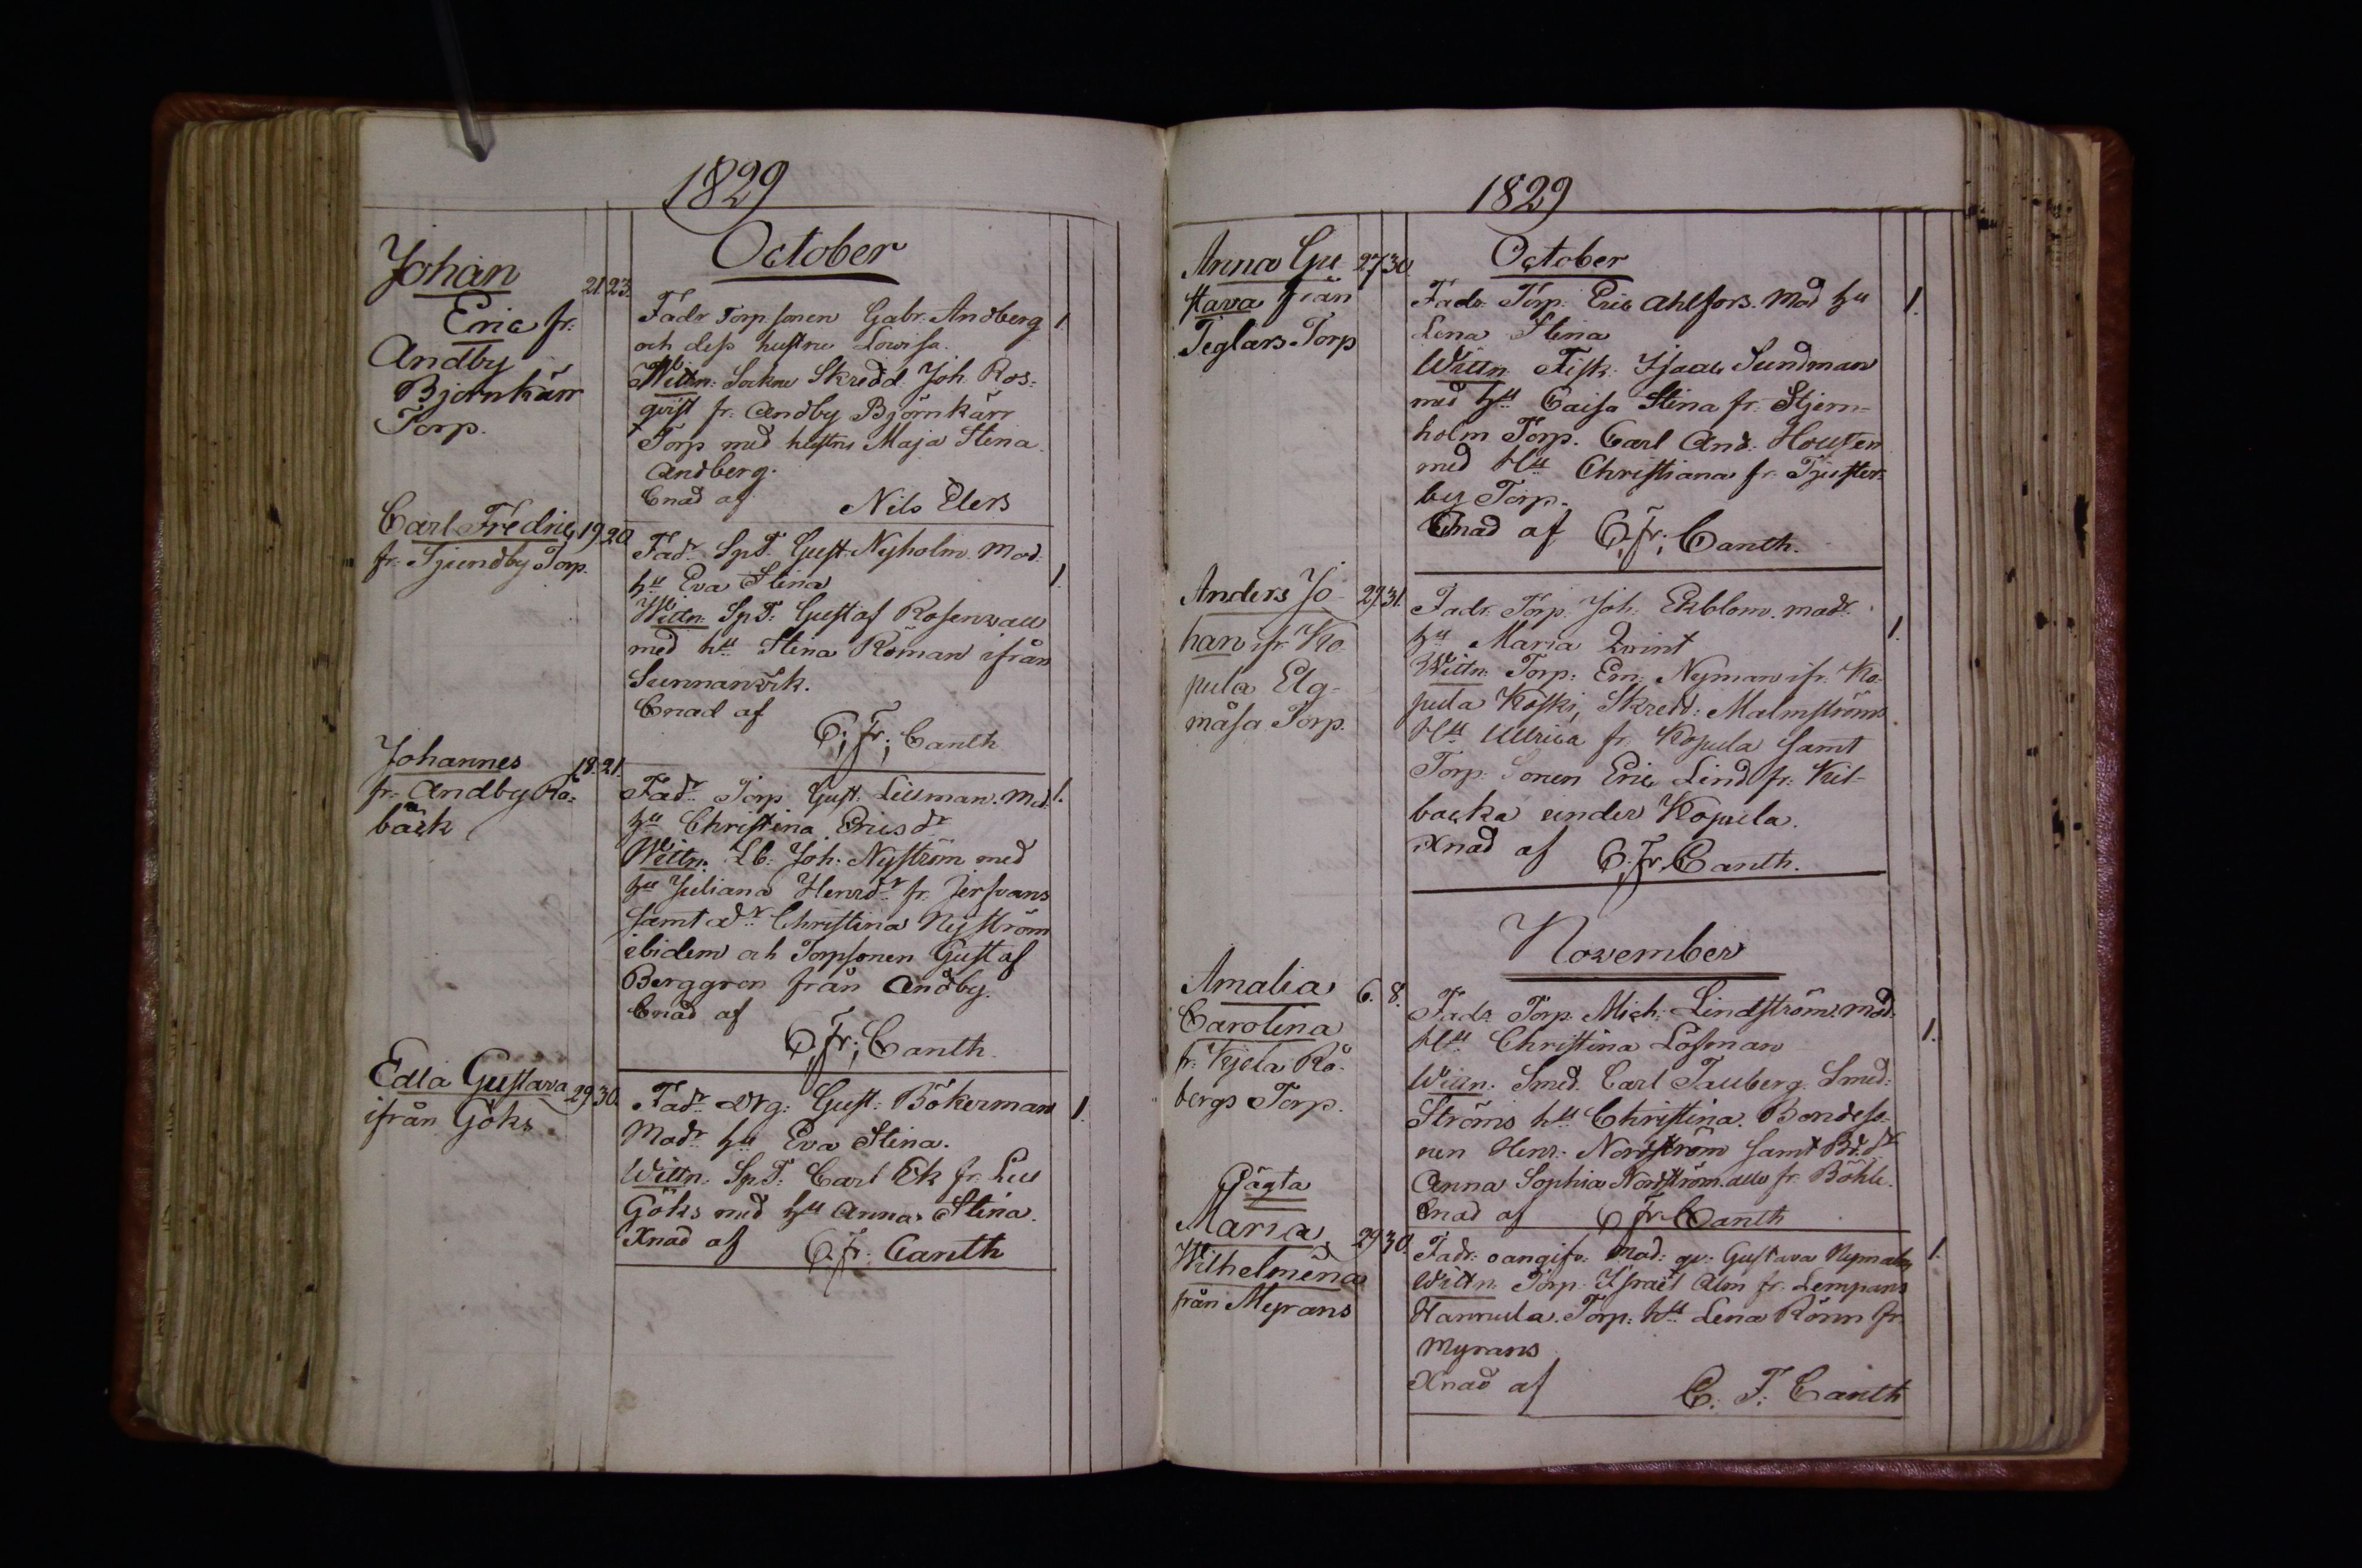 1829
October
Johan
Eric fr:
Andby
Bjornkärr
Torp.
21. 23.
Fadr Torp. sonen Gabr. Andberg 1.
och dess hustru Lowisa.
Wittn: Sockne Skredd. Joh. Ros=
qvist fr. Andby Björnkärr
Torp med hustru Maja Stina
Andberg.
Cnad af Nils Elers
Carl Fredric 19 20
fr. Tjundby Torp.
Fadr. Sp.T. Gust. Nyholm. Mod: 1.
hu Eva Stina
Wittn: Sp.T: Gustaf Rosenwall
med hu Stina Röman ifrån
Sunnanwik.
Cnad af
C; Fr; Canth
Johannes 18. 21.
fr. Andby Rå=
bäck
Fadr Torp Gust. Lillman. Mod. 1.
hu Christina Ericsdr
Wittn. Lb: Joh: Nyström med
hu Juliana Henrdr fr. Jersvans
samt dr Christina Nyström
ibidem och Torpsonen Gustaf
Berggren från Andby.
Cnad af
C; Fr; Canth.
Edla Gustava 29 30.
ifrån Göks
Fadr Drg: Gust: Bökerman 1.
Modr hu Eva Stina.
Wittn. Sp.T: Carl Ek fr. Lill
Göks med hu Anna Stina.
Xnad af C. Fr. Canth
1829
October
Anna Gu 27 30
stava från
Teglars Torp
Fadr Torp. Eric Ahlfors. Mod hu 1.
Lena Stina
Wittn. Fisk. Isaac Sundman
med hu Caisa Stina fr. Stjern=
holm Torp. Carl And. Housten
med Hu Christiana fr. Tjuster=
by Torp.
Cnad af C; Fr; Canth.
Anders Jo- 29 31.
han ifr. Ko
pula Elg-
måsa Torp.
Fadr. Torp. Joh: Ekblom. modr. 1.
hu Maria Qwint
Wittn: Torp: Em: Nyman ifr. Ko-
pula Koski, Skredd: Malmströms
Hu Ullrica fr. Kopula samt
Torp: Sonen Eric Lind fr: Kil-
backa under Kopula.
Xnad af C. Fr. Canth.
November
Amalia 6. 8.
Carolina
fr. Kjela Rö-
bergs Torp.
Fadr Torp. Mich: Lindström. Mod. 1.
Hu Christina Lösman
Wittn. Smed. Carl Tauberg. Smed:
Ströms hu Christina. Bondeso-
nen Henr. Nordström samt Bd.dr
Anna Sophia Nordström alla fr. Böhle.
Cnad af C Fr. Canth
Oägta
Maria 29 30.
Wilhelmena
från Myrans
Fadr. oangifv. Mod: qv. Gustava Nyman 1.
Wittn. Torp. Israel Alm fr. Lempans
Hannula. Torp: hu Lena Rönn fr.
Myrans
Xnad af C. F: Canth